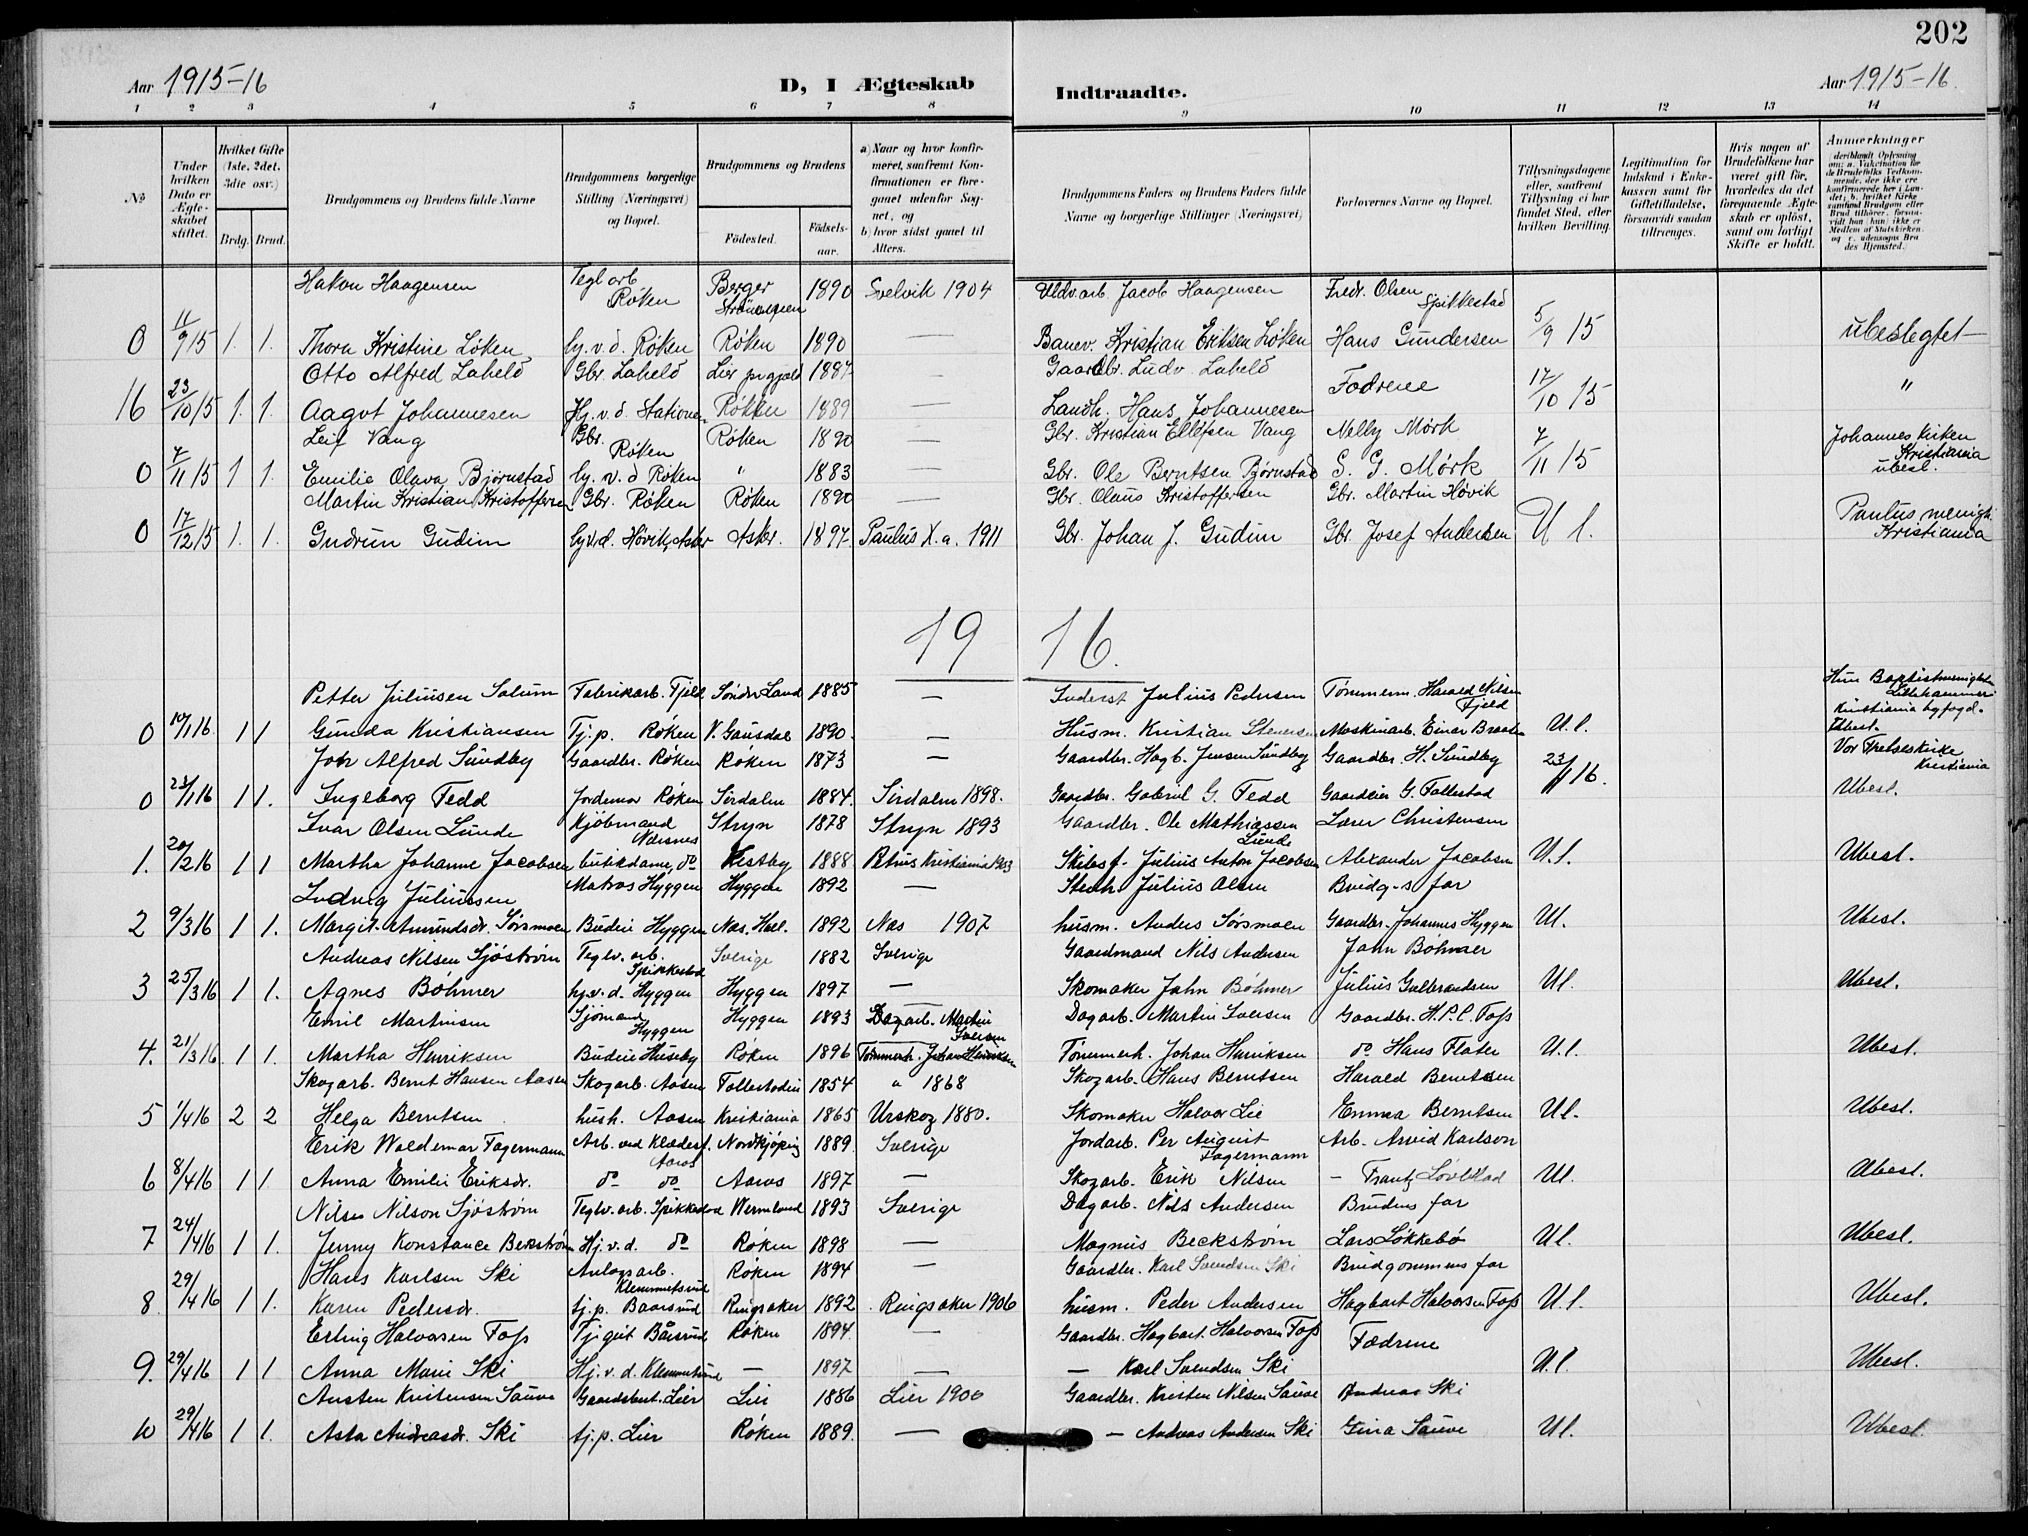 202
Aar 1915-16
D, I Ægteskab
Indtraadte.
Aar 1915-16.
1 2 3 4 5 6 7 8 9 10 11 12 13 14
No
Under hvilken Dato er Ægteskabet stiftet.
Hvilket Gifte (1ste, 2det, 3die osv.)
Brdg. Brud.
Brudgommens og Brudens fulde Navne
Brudgommens borgerlige Stilling (Næringsvei) og Bopæl.
Brudgommens og Brudens
Fødested.
Fødselsaar.
a) Naar og hvor konfirmeret, saafremt Konfirmationen er foregaaet udenfor Sognet, og
b) hvor sidst gaaet til Alters.
Brudgommens Faders og Brudens Faders fulde Navne og borgerlige Stillinger (Næringsvei)
Forlovernes Navne og Bopæl.
Tillysningsdagene eller, saafremt Tillysning ei har fundet Sted, efter hvilken Bevilling.
Legitimation for Indskud i Enkekassen samt for Giftetilladelse, forsaavidt saadan tiltrænges.
Hvis nogen af Brudefolkene har været gift før, hvorledes da det foregaaende Ægteskab er opløst, samt om lovligt Skifte er holdt.
Anmerkninger
Hakon Haagensen Tegl arb Røken Berger Strømmen 1890 Svelvik 1904 Uldv.arb. Jacob Haagensen Fredr. Olsen Spikkestad
0 11/9 15 1. 1. Thora Kristine Løken hj. v. d. Røken Røken 1890 — Banev. Kristian Eriksen Løken Hans Gundersen 5/9 15 ubeslegtet
Otto Alfred Lahelö Gbr. Lahelö Lier prgjeld 1887 — Gaardbr. Ludv. Lahelö
16 23/10 15 1. 1. Aagot Johannesen Hj. v. d. Stationen Røken 1889 — Landh. Hans Johannesen Fædrene 17/10 15 "
Leif Vang Gbr. Røken Røken 1890 — Gbr. Kristian Ellefsen Vang Nelly Mörk Johannes Kirken Kristiania
0 7/11 15 1 1. Emilie Olava Björnstad hj. v. d Røken " 1883 — Gbr. Ole Berntsen Bjørnstad S. G. Mørk 7/11 15 ubesl.
Martin Kristian Kristoffersen Gbr. Røken Røken 1890 — Gbr. Olaus Kristoffersen Gbr. Martin Høvik
0 17/12 15 1. 1. Gudrun Gudim hj.v.d. Hövik, Asker Asker. 1897 Paulus X.a. 1911 Gbr. Johan J. Gudim Gbr. Josef Andersen U l. Paulus menigh. Kristiania
19 16.
Petter Juliusen Solum Fabrikarb. Fjeld Söndre Land 1885 — Inderst Julius Pedersen Tømmerm. Harald Nilsen Fjeld Hun Baptistmenigheten Lillehammer
0 10/1 16. 1 1 Gunda Kristiansen Tj. p. Røken V. Gausdal 1890. — Husm. Kristian Stenersen Maskinarb. Einar Braaten U. l. Kristiania byfogd. Ubesl.
Johr Alfred Sundby Gaardbr. Røken Røken 1873 — Gaardbr. Hagb. Jensen Sundby Gaardbr. H. Sundby Vor Frelseskirke Kristiania
0 23/1 16 1 1. Ingeborg Fedd Jordemor Røken Sirdalen 1884. Sirdalen 1898. Gaardbr. Gabriel G. Fedd Gaardeier G. Follestad 23/1 16. Ubesl.
Ivar Olsen Lunde Kjöbmand Nærsnes Stryn 1878 Stryn 1893 Gaardbr. Ole Mathiassen Lunde Lærer Christensen
1. 20/2 16 1 1 Martha Johanne Jacobsen butikdame, do Vestby 1888 Petrus Kristiania 1903 Skibsf. Julius Anton Jacobsen Alexander Jacobsen U. l. Ubesl.
Ludvig Juliussen Matros Hyggen Hyggen 1892 — Stenh. Julius Olsen Brudg-s far
2 9/3 16 1 1. Margit Amundsdr. Sørsmoen Budeie Hyggen Nes. Hall. 1892 Nes 1907 husm. Anders Sørsmoen Gaardbr. Johannes Hyggen Ul. Ubesl.
Andreas Nilsen Sjöström Teglv. arb. Spikkestad Sverige 1882 Sverige Gaardmand Nils Andersen John Böhmer
3 25/3 16 1 1. Agnes Böhmer hj. v. d. Hyggen Hyggen 1897 — Skomaker John Böhmer Julius Gulbrandsen Ul. Ubesl.
Emil Martinsen Sjömand Hyggen Hyggen 1893 Dagarb. Martin Iversen Dagarb. Martin Iversen Gaardbr. H. P. C. Foss
4. 21/3 16. 1 1. Martha Henriksen Budeie Huseby Røken 1896 Tømmerh. Johan Henriksen Tømmerh. Johan Henriksen do Hans Flater U. l. Ubesl.
Skogarb. Bernt Hansen Aasen Skogarb. Aasen Follestadeie 1854 " 1868 Skogarb. Hans Berntsen Harald Berntsen
5 1/4 16 2 2 Helga Berntsen hush. Aasen Kristiania 1865 Urskog 1880. Skomaker Halvor Lie Emma Berntsen Ul. Ubesl.
Erik Waldemar Fagermann Arb. ved Klædesf. Aaros Nordkjöping 1889. Sverige Jordarb. Per August Fagermann Arb. Arvid Karlson
6 8/4 16 1 1 Anna Emilie Eriksdr. do do Aaros 1897 — Skogarb. Erik Nilsen — Frantz Lövblad Ul. Ubesl.
Nilses Nilson Sjöström Teglv. arb. Spikkestad Wermland 1893 Sverige Dagarb. Nils Andersen Brudens far
7 24/4 16 1 1. Jenny Konstance Beckström Hj. v. d. do Røken 1898 — Magnus Beckström Lars Løkkebö Ul. Ubesl.
Hans Karlsen Ski Anlægsarb. Klemmetsrud Røken 1894 — Gaardbr. Karl Svendsen Ski Brudgommens far
8. 29/4 16 1 1. Karen Pedersdr. tj. p. Baarsrud Ringsaker 1892. Ringsaker 1906 husm. Peder Andersen Hagbart Halvorsen Foss U. l. Ubesl.
Erling Halvorsen Foss Tj.gut Bårsrud Røken 1894. — Gaardbr. Hagbart Halvorsen Foss Fædrene
9. 29/4 16 1 1 Anna Marie Ski Hj. v. d. Klemmetsrud — 1897 — — Karl Svendsen Ski U. l. Ubesl.
Austen Kristensen Sauve Gaardsbest. Lier Lier 1886 Lier 1900 Gaardbr. Kristen Nilsen Sauve Andreas Ski
10 29/4 16 1 1. Asta Andreasdr. Ski tj. p. Lier Røken 1889. — — Andreas Andersen Ski Gina Sauve Ul. Ubesl.